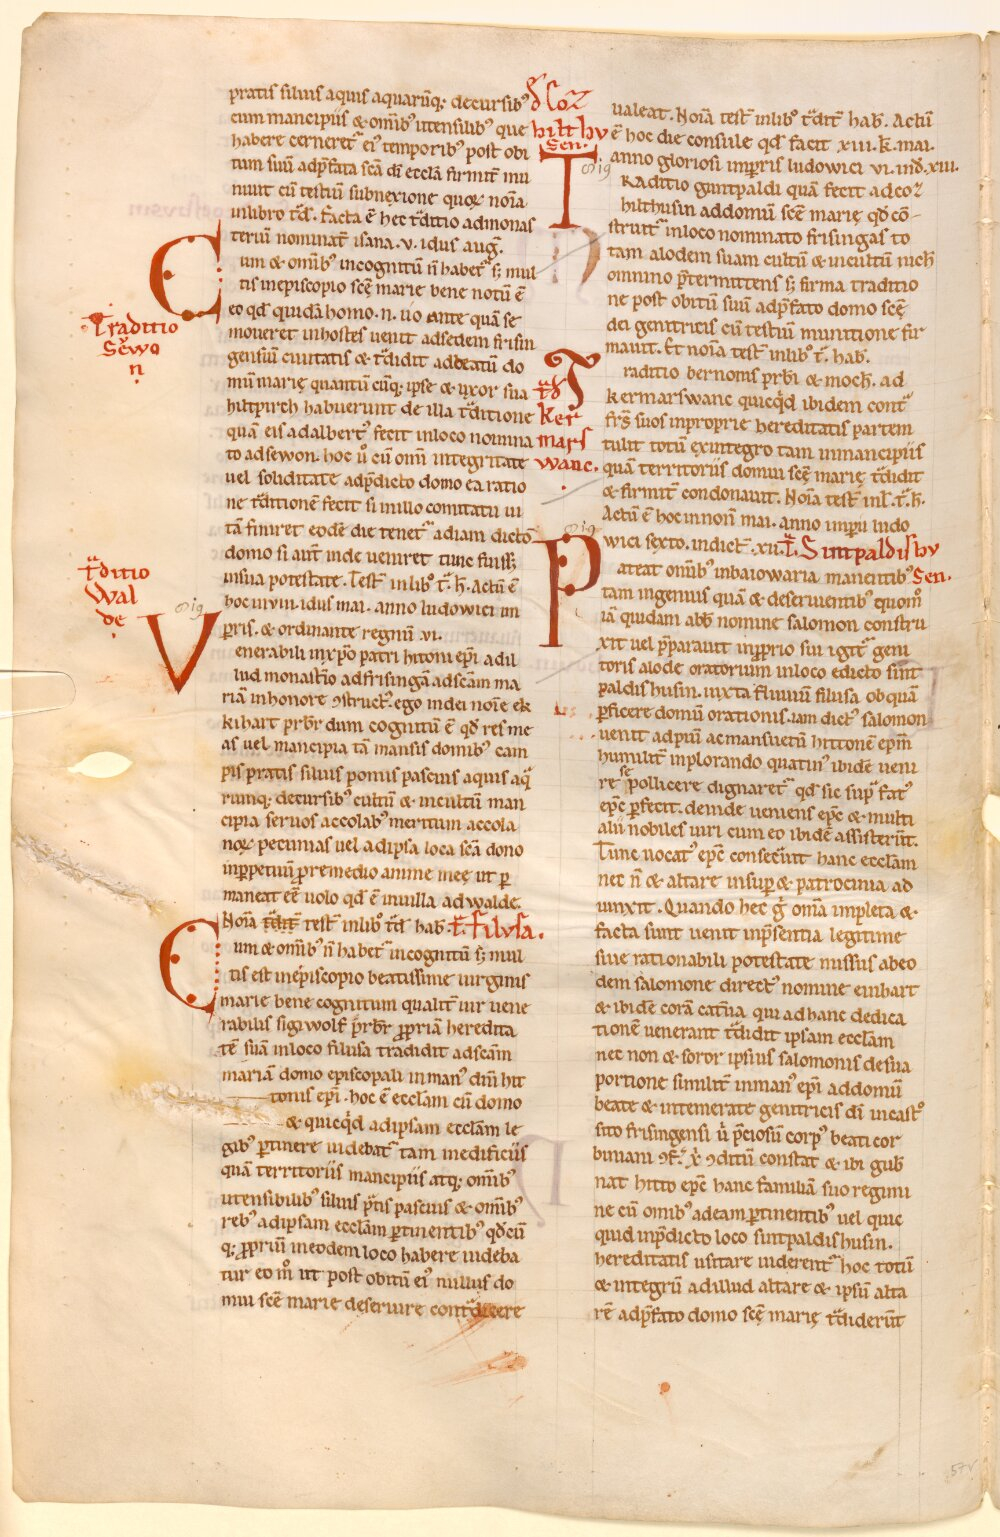 pratis siluis aquis aquarūq; decursib᾽
cum mancipiis & om̄ib᾽ utensilib᾽ que
habere cerneret᾽ ei᾽ temporib᾽ post obi
tum suū adp̄fata scā dī ecclā firmit̄ mu
niuit cū testiū subnexione quoꝝ noīa
inlibro t̄d̄. facta ē hec t̄ditio admonas
teriū nominat̄ isana. v. idus auḡ.
Cum & om̄ib᾽ incognitū n̄ habet᾽ s; mul
tis inepiscopio scę marie bene notū ē
eo qd̄ quidā homo .n. uo ante quā se
moueret inhostes uenit adsedem frisin
gensiū ciuitatis & t̄didit adbeatū do
mū marię quantū cūq; ipse & uxor sua
hiltpirch habuerunt de illa t̄ditione
quā eis adalbert᾽ fecit inloco nomina
to adsewon. hoc ū cū om̄i integritate
uel soliditate adp̄dicto domo ea ratio
ne t̄ditionē fecit si inillo comitatu ui
tā finiret eodē die tenet᾽ adiam dictō
domo si aut̄ inde ueniret tunc fuiss;
insua potestate. Test̄ inlib᾽ t̄. h̄. actū ē
hoc in viii. idus mai. anno ludowici im
p̄ris. & ordinante regnū vi.
Venerabili inxp̄o patri hitoni ep̄i adil
lud monast̄io adfrisingā adscām ma
riā inhonore ꝯstruct̄. ego indei noīe ek
kihart prb̄r dum cognitū ē qd̄ res me
as uel mancipia tā mansis domib᾽ cam
pis pratis siluis pomis pascuis aquis aq̄
rumq; decursib᾽ cultū & incultū man
cipia seruos accolab᾽ meritum accola
noꝝ pecunias uel adipsa loca scā dono
inp̄petuū ꝓremedio anime meę ut p̄
maneat eē uolo qd̄ ē inuilla adwalde.
Noīa t̄dit̄ test̄ inlib᾽ t̄d̄ hab̄. t̄. filusa.
Cum & om̄ib᾽ n̄ habet᾽ incognitū s; mul
tis est inepiscopio beatissime uirginis
marie bene cognitum qualit̄ uir uene
rabilis sigiwolf prb̄r ꝓpriā heredita
tē suā inloco filusa tradidit adscām
mariā domo episcopali inman᾽ dn̄i hit
tonis ep̄i. hoc ē ecclām cū domo
& quicqd̄ adipsam ecclām le
gib᾽ ꝑtinere uidebat᾽ tam inedificiis
quā territoriis mancipiis atq; om̄ib᾽
utensibilib᾽ siluis p̄tis pascuis & om̄ib᾽
reb᾽ adipsam ecclām ꝑtinentib᾽ qd̄cū
q; ꝓpriū ineodem loco habere uideba
tur eo m̊ ut post obitū ei᾽ nullus do
mui scē marie deseruire cont̄dicere
Traditio
Sewo
n
t̄ditio
Wal
de
Coꝛ
hilthu
sen.
ualeat. Noīa test̄ inlib᾽ t̄dit̄ hab̄. Actū
ē hoc die consule qd̄ facit xiii. k̄. mai.
anno gloriosi imp̄ris ludowici vi. ind̄. xiii.
TRaditio guntpaldi quā fecit adcoꝛ
hilthusin addomū scē marię qd̄ cō
struit᾽ inloco nominato frisingas to
tam alodem suam cultū & incultū nich
omnino p̄termittens s; firma traditio
ne post obitū suū adp̄fato domo scę
dei genitricis cū testiū munitione fir
mauit. Et noīa test̄ inlib᾽ t̄. hab̄.
Traditio bernonis prb̄i & moch̄. ad
kermarswanc quicqd̄ ibidem cont᾽
frs̄ suos inproprie hereditatis partem
tulit totū exintegro tam inmancipiis
quā territoriis domui scę marię t̄didit
& firmit̄ condonauit. Noīa test̄ inl̄. t̄. h̄.
Actū ē hoc innon̄ mai. anno imp̄ii ludo
wici sexto. indict̄. xii. t̄. Sintpaldishu
sen.
t̄d̄
ker
mars
wanc.
Pateat om̄ib᾽ inbaiowaria manentib᾽
tam ingenuis quā & deseruientib᾽ quom̊
iā quidam abb̄ nomine salomon constru
xit uel p̄parauit inp̄prio sui igit᾽ geni
toris alode oratorium inloco edicto sint
paldishusin. iuxta fluuiū filusa ob quā
ꝑficere domū orationis. iam dict᾽ salomon
uenit adpiū ac mansuetū hittonē ep̄m
humilit̄ inplorando quatin᾽ ibidē ueni
re se pollicere dignaret᾽ qd̄ sic sup᾽ fat᾽
ep̄c ꝑfecit. deinde ueniens ep̄c & multi
alii nobiles uiri cum eo ibidē assisterūt.
Tunc uocat᾽ ep̄c consec̄uit hanc ecclām
nec n̄ & altare insup & patrocinia ad
iunxit. Quando hec ḡ om̄a impleta &
facta sunt uenit inp̄sentia legitime
siue rationabili potestate missus abeo
dem salomone direct᾽ nomine einhart
& ibidē corā cat̄ua qui adhanc dedica
tionē uenerant t̄didit ipsam ecclām
nec non & soror ipsius salomonis desua
portione similit̄ inman᾽ ep̄i addomū
beate & intemerate genitricis dī incast᾽
sito frisingensi ū p̄ciosū corp᾽ beati cor
biniani ꝯf̄. x̄ ꝯditū constat & ibi gub̄
nat hitto ep̄c hanc familiā suo regimi
ne cū omib᾽ adeam ꝑtinentib᾽ uel quic
quid inp̄dicto loco sintpaldishusin.
hereditatis uisitare uiderent᾽ hoc totū
& integrū adillud altare & ipsū alta
rē adp̄fato domo scę marię t̄diderūt
57v